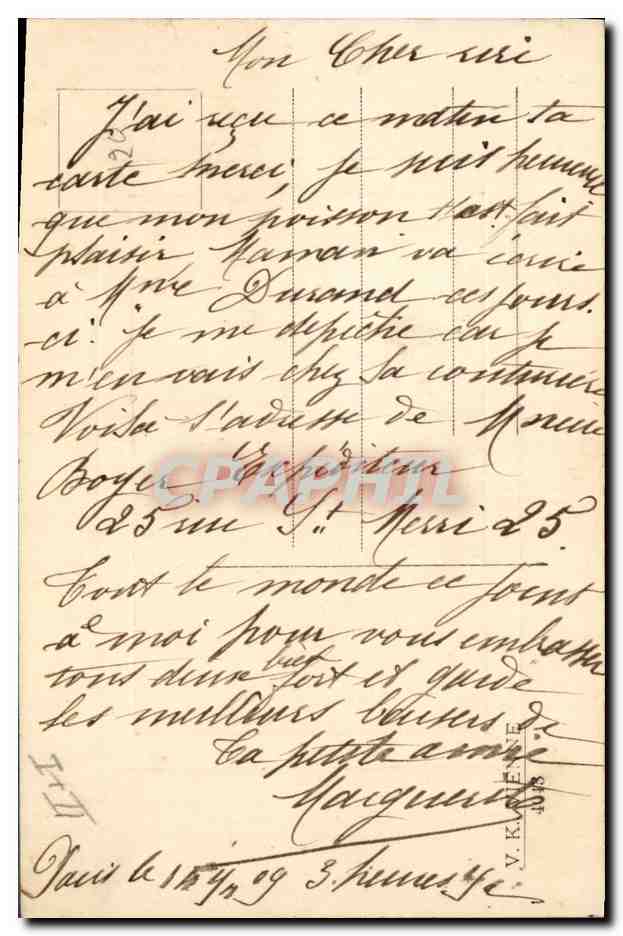 Mon Cher
J'ai reçu ce matin ta
carte merci, je suis heureuse
que mon poisson t'est fait
plaisir Maman va écrire
à Mme Durand ces jours-
ci. je me depêche car je
m'en vais chez la couturière
Voila l'adresse de Mme
Boyer Expéditeur
25 rue St Merri 25
Tout le monde ce joint
a moi pour vous embrasser
tous deux bien fort et garde
les meilleurs baisers de
ta petite amie
Marguerite
Paris le 09 3 heures 1/2
20
I+I
CPAPHIL
V. K. VIENNE